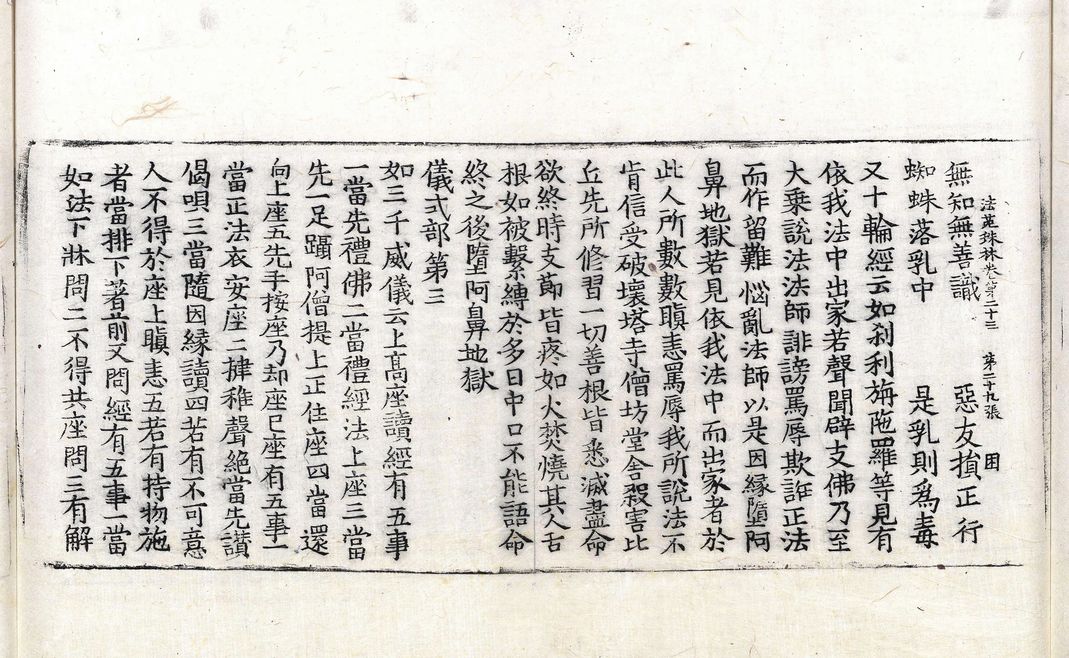 法苑珠林卷第二十三　第二十九張　困
無知無善識　惡友損正行
蜘蛛落乳中　是乳則爲毒
又十輪經云如刹利旃陁羅等見有
依我法中出家若聲聞辟支佛乃至
大乗說法法師誹謗罵辱欺誑正法
而作留難惱亂法師以是因縁墮阿
鼻地獄若見依我法中而出家者於
此人所數數瞋恚罵辱我所說法不
肯信受破壞塔寺僧坊堂舍殺害比
丘先所修習一切善根皆悉滅盡命
欲終時支莭皆疼如火焚燒其人舌
根如被繫縛於多日中口不能語命
終之後墮阿鼻地獄
儀式部第三
如三千威儀云上髙座讀經有五事
一當先禮佛二當禮經法上座三當
先一足躡阿僧提上正住座四當還
向上座五先手按座乃却座已座有五事一
當正法衣安座二揵稚聲絕當先讃
偈唄三當隨因縁讀四若有不可意
人不得於座上瞋恚五若有持物施
者當排下著前又問經有五事一當
如法下牀問二不得共座問三有解